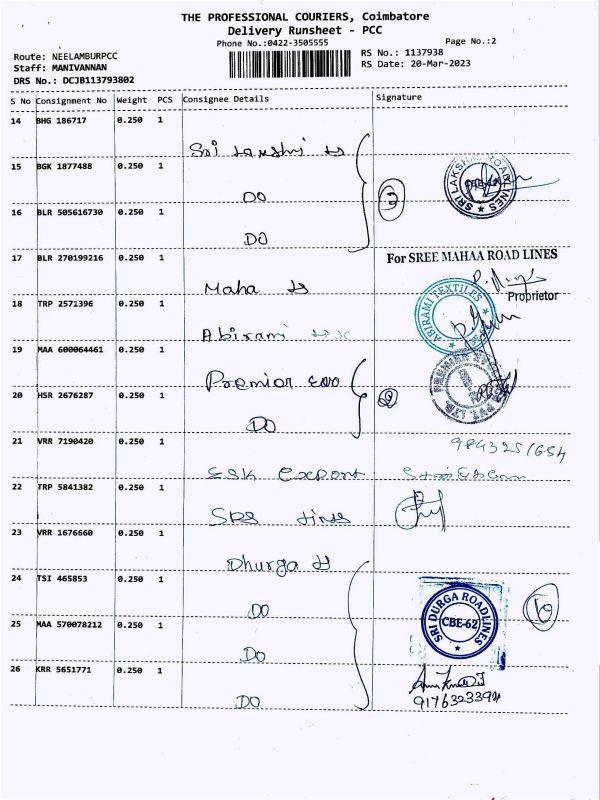 THE PROFESSIONAL COURIERS, Coimbatore
Delivery Runsheet - PCC
Phone No.:0422-3505555
Page No.:2
Route: NEELAMBURPCC
RS No.: 1137938
Staff: MANIVANNAN
RS Date: 20-Mar-2023
DRS No.: DCJB113793802
S No Consignment No Weight PCS Consignee Details Signature
14 BHG 186717 0.250 1
Sri
15 BGK 1877488 0.250 1
DO
SRI LAKSHMI ROADLINES
16 BLR 505616730 0.250 1
DO
17 BLR 270199216 0.250 1
For SREE MAHAA ROAD LINES
Maha
Proprietor
18 TRP 2571396 0.250 1
ABIRAMI TEXTILES
Abirami
19 MAA 600064461 0.250 1
Premier
20 HSR 2676287 0.250 1
DO
21 VRR 7190420 0.250 1
9843251654
ESK Export
22 TRP 5841382 0.250 1
SRS
23 VRR 1676660 0.250 1
Dhurga
24 TSI 465853 0.250 1
DO
SRI DURGA ROADLINES
CBE-62
10
25 MAA 570078212 0.250 1
DO
26 KRR 5651771 0.250 1
DO
9176323394